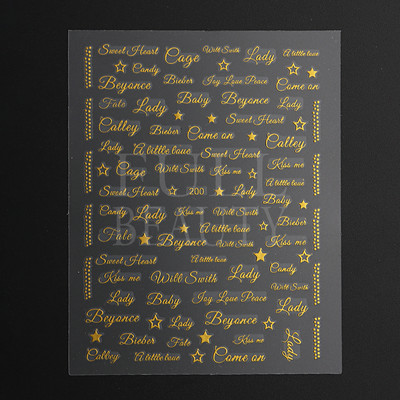 Sweet Heart Cage Will Swith Lady A little love
Candy
Beyonce Bieber Joy Love Peace Come on
Fale Lady Baby Beyonce Lady
Calley Bieber Come on Sweet Heart Calley
Lady A little love Sweet Heart Kiss me
Cage Will Swith Kiss me A little love
Sweet Heart 200 Lady Baby
Candy Lady Kiss me Will Swith Bieber
Fale Beyonce Lady Will Swith Kiss me
Sweet Heart A little love Candy
Kiss me Will Swith Lady Will Swith
Lady Baby Joy Love Peace Lady
Beyonce Lady Beyonce Candy
Bieber Fale Kiss me Lady
Calley A little love Come on
FULL
BEAUTY